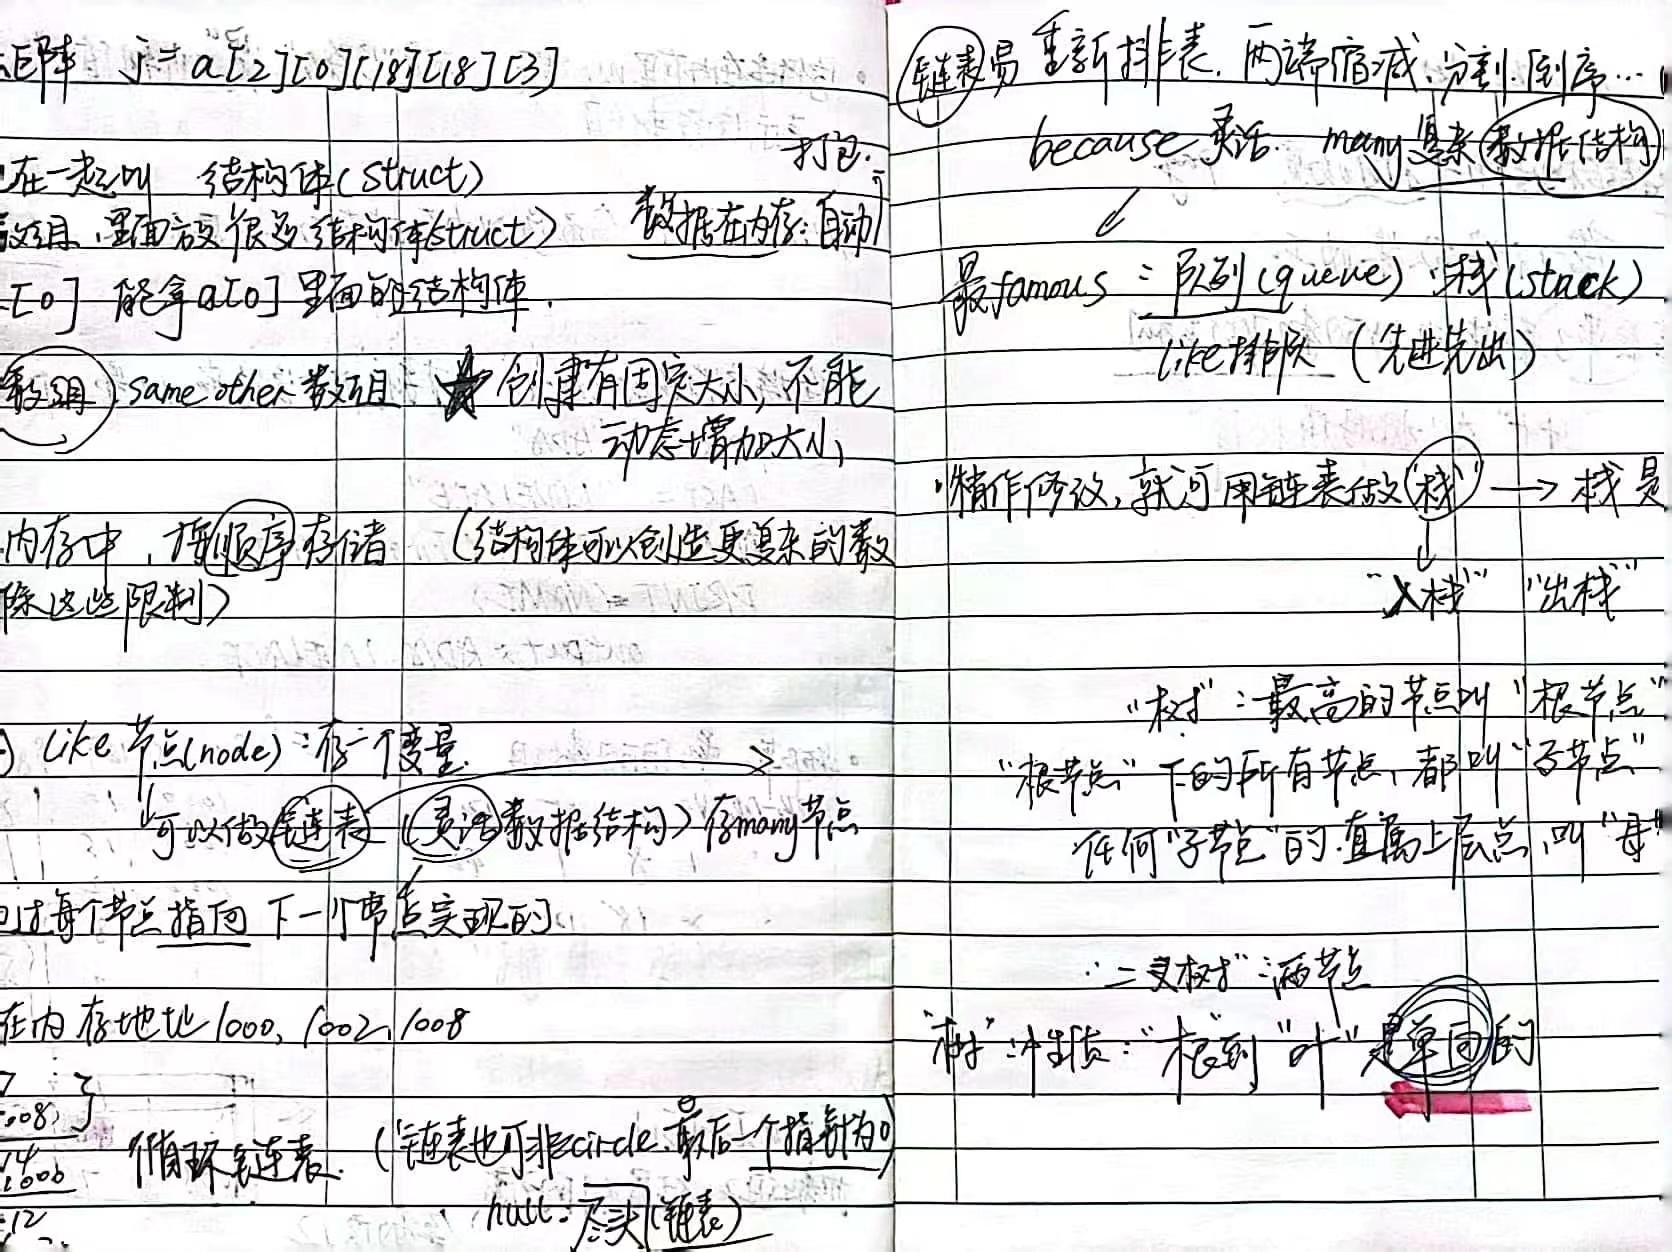 矩阵 j = a[2][0][18][18][3]
在一起叫 结构体(struct) 打包.
数组,里面放很多结构体(struct) 数据在内存:自动
[0] 能拿a[0]里面的结构体.
数组 same other 数组 创建有固定大小,不能
动态增加大小
内存中,按顺序存储 (结构体可以创造更复杂的数
除这些限制)
like 节点(node):存一个变量
可以做链表 (灵活数据结构)存many节点
过每个节点指向下一个节点实现的
在内存地址1000,1002,1008
循环链表. (链表也可非circle.最后一个指针为0
null. 尽头(链表)
链表易 重新排表.两端缩减.分割.倒序...
because 灵活. many复杂数据结构
最famous:队列(queue) 栈(stack)
like排队 (先进先出)
稍作修改,就可用链表做"栈" → 栈是
"入栈" "出栈"
"树":最高的节点叫"根节点"
"根节点"下的所有节点,都叫"子节点"
任何"子节点"的直属上层点,叫"母"
"二叉树":两节点
"树":性质:"根"到"叶"是单向的